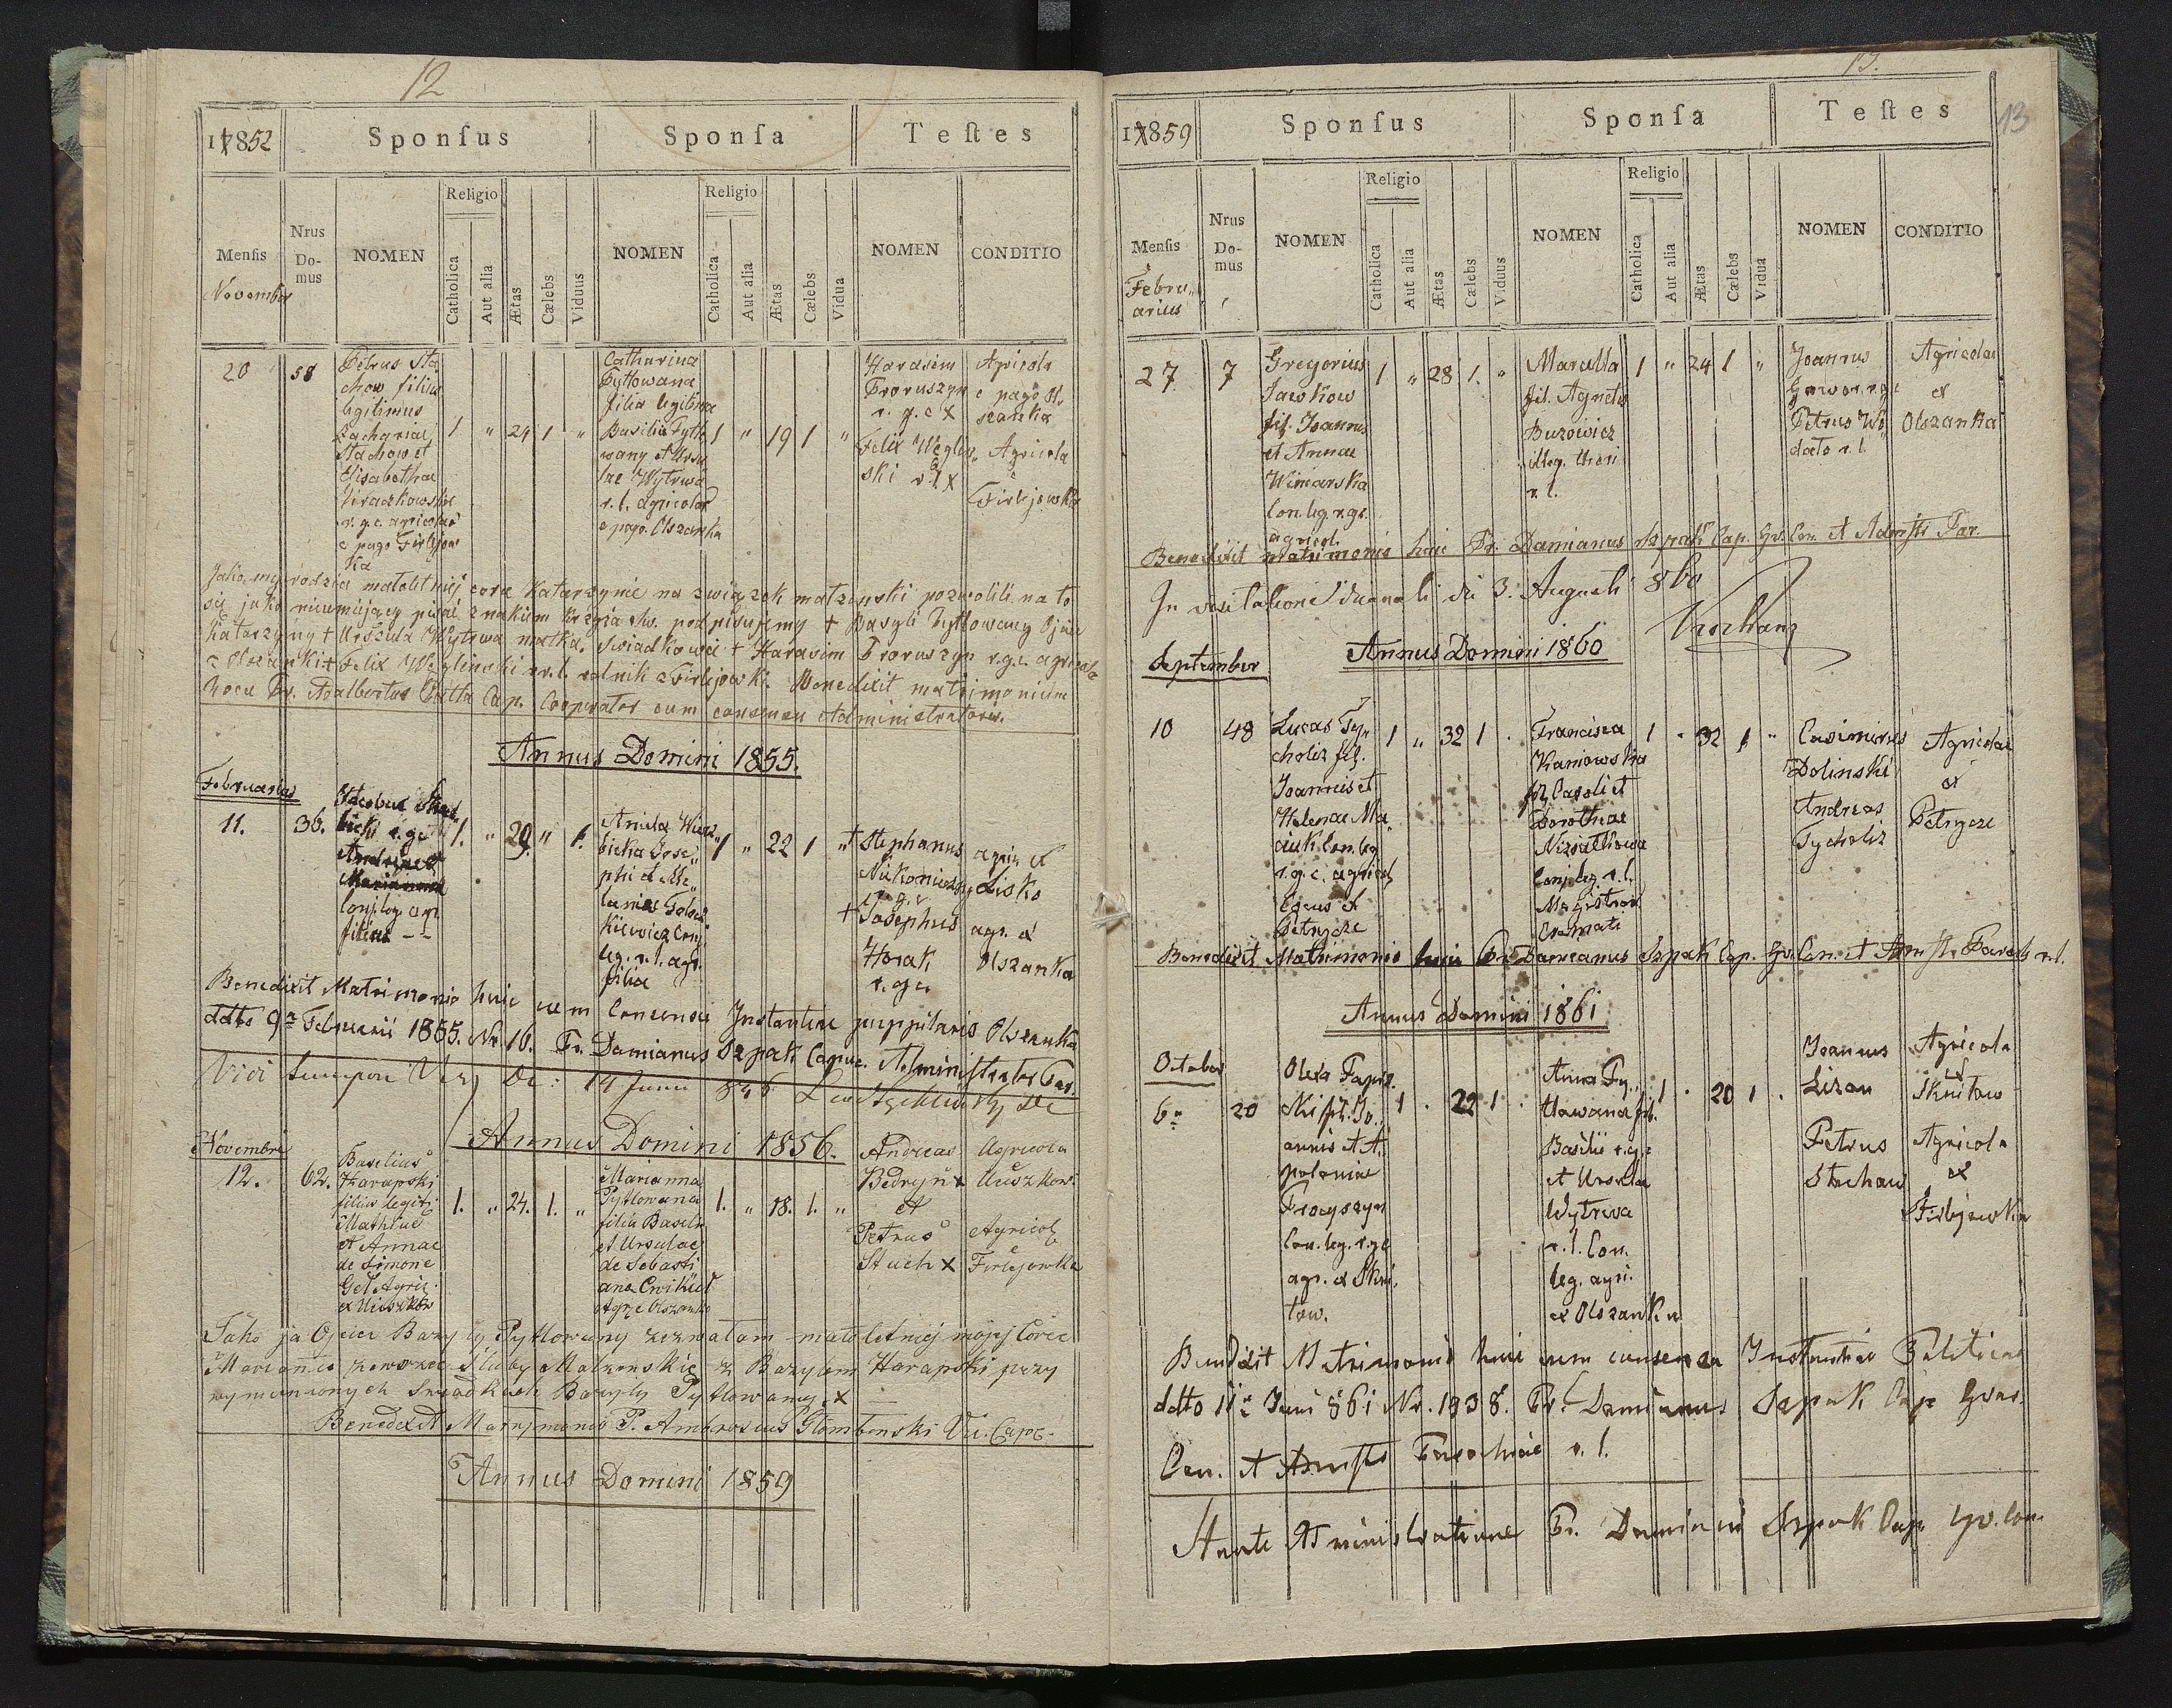 12
17852
Sponſus
Sponſa
Teſtes
Menſis
November
Nrus Do-mus
NOMEN
Religio
Catholica
Aut alia
Ætas
Cælebs
Viduus
NOMEN
Religio
Catholica
Aut alia
Ætas
Cælebs
Vidua
NOMEN
CONDITIO
20
58
Petrus Sta
chow filius
legitimus
Zachariae
Stachow et
Elisabethae
r. g. c. agricolae
e pago Firlejow
ka
1 " 24 1 "
Catharina
Pyttowana
filia legitima
Basilii Pytto
wany et Ursu
lae Wytrwa
r. l. agricolae
e pago Olszanka
1 " 19 1 "
Harasim
Proruszyn
r. g. c X
Felix Weglin„
ski r. l. X
Agricola
e pago Ol
szanka
Agricola
e
Firlejowka
Jako my rodzice małoletniej córce Katarzynie na związek małżeński pozwolili na to
się jako nieumiejący pisać znakiem krzyża śtw. podpisujemy + Basyli Pyttowany Ojciec
Katarzyny + Urszula Wytrwa matka. Swiadkowie + Harasim Proruszyn r.g.c. agricola
z Olszanki + Felix Węglinski r.l. rolnik z Firlejowki. Benedixit matrimonium
hocce Fr. Adalbertus Cap. Cooperator cum consensu Administratoris.
Annus Domini 1855.
Februarius
11.
36.
Jacobus
bicki r. gc
Andreae et
Marianna
conj. leg. agr.
filius
1. " 29. " 1.
Aniela Wierz„
bicka Jose„
phi et Me„
laniae
kiewicz conj.
leg. r. l. agr.
filia
1 " 22 1 "
+ Stephanus
r. gc
+ Josephus
Horak
r. gc.
agric. ex
Lisko
agr. ex
Olszanka
Benedixit Matrimonio huic cum Consensu Instantiae puppilaris Olszanka
ddto 9ª Februarii 1855. Nr. 16. Fr. Damianus Szpak Capuc. Administrator Par.
Vidi tempore De: 14 Junii 856
Annus Domini 1856.
Novembri
12.
62.
Basilius
Harapski
filius legiti:
Mathiae
et Annae
de Simone
Get Agric:
ex Uiszkow
1. " 24. 1. "
Marianna
Pytlowana
filia Basilii
et Ursulae
de Sebasti
ana Cwikuła
Agric Olszanka
1. " 18. 1. "
Andreas
Bedryń x
et
Petrus
Stuch X
Agricola
Uuszkow.
Agricol
e
Firlejowka
Jako ja Ojciec Bazyly Pytlowany zezwalam małoletniej mojej Corce
Mariannie zawrzec śluby Małżenskie z Bazylem Harapski przy
wymienionych Swiadkach Bazyly Pytlowany. X
Benedixit Matrymonio P. Ambrosius Głombinski Vic. Capc.
Annus Domini 1859
13.
13
17859
Sponſus
Sponſa
Teſtes
Menſis
Febru„
arius
Nrus Do-mus
NOMEN
Religio
Catholica
Aut alia
Ætas
Cælebs
Viduus
NOMEN
Religio
Catholica
Aut alia
Ætas
Cælebs
Vidua
NOMEN
CONDITIO
27
7
Gregorius
Jawkow
fil. Joannis
et Annae
Winiarska
Con. leg. r. gc.
agricol.
1 " 28 1. "
Marcella
fil. Agnetis
Burowicz
illeg. thori
r. l.
1 " 24 1 "
Joannes
r. gc
Petrus Wo„
dato r. l.
Agricolae
ex
Olszanka
Benedixit matrimonio huic Fr. Damianus Szpak Cap. Gv. Con. et Adm̄str Par.
In visitatione decanali die 3. Augusti 860
September
Annus Domini 1860
10
48
Lucas Ty„
choliz fil.
Joannis et
Helenae Ma„
ciuk Con. leg
r. g. c. agricol
ex
Petrycze
1 " 32 1 .
Francisca
Kaniowska
fil. Caroli et
Dorotheae
Conj. leg. r. l.
Magistrae
1 " 32 1 "
Casimirus
Dolinski
Andreas
Tycholiz
Agricolae
ex
Petrycze
Benedixit Matrimonio huic Fr. Damianus Szpak Cap. Gv. Con. et Adm̄str. Paroch r. l.
Annus Domini 1861
October
6ª
20
Olexa Papro.
ski fil. Jo„
annis et A„
poloniae
Procyszyn
Con. leg. r. gc
agr. ex Skni„
tow.
1 . 22 1 .
Anna Py„
tlowana fil.
Basilii r. g. c
et Ursulae
Wytrwa
r. l. Con.
leg. agri.
ex Olszanka
1 . 20 1 .
Joannes
Lizan
Petrus
Stachow
Agricola
ex
Sknitow
Agricola
ex
Firlejowka
Benedixit Matrimonio huic cum consensu Instantiae Politicae
ddto 11ª Juni 861 Nr. 1938. Fr. Damianus Szpak Cap Gvar.
Con. et Adm̄str Parochiae r. l.
Ante Administratione Fr. Damiani Szpak Cap Gv. Con.